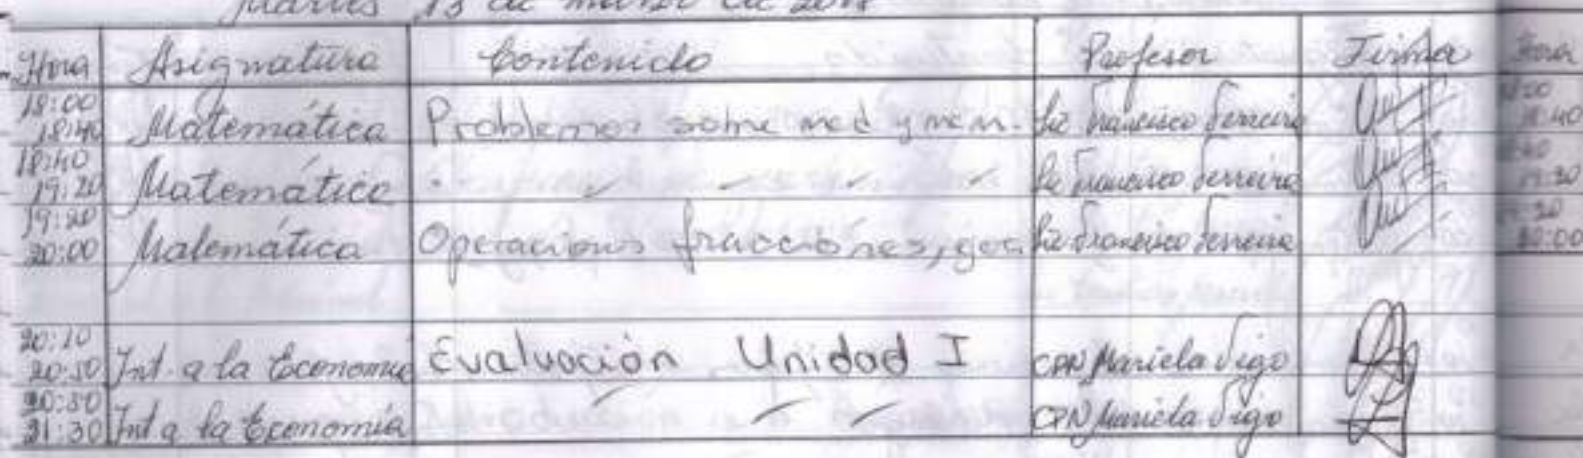 Martes 13 de marzo de
Hora Asignatura Contenido Profesor Firma Hora
18:00
18:40 Matemática Problemas sobre med y Lic Francisco Ferreira 18:40
18:40
19:20 Matemática Lic Francisco Ferreira
19:20
20:00 Matemática Operaciones fracciones, Lic Francisco Ferreira 20:00
20:10
20:50 Int. a la Economía Evaluación Unidad I CPN Mariela Vigo
20:50
21:30 Int a la Economía CPN Mariela Vigo